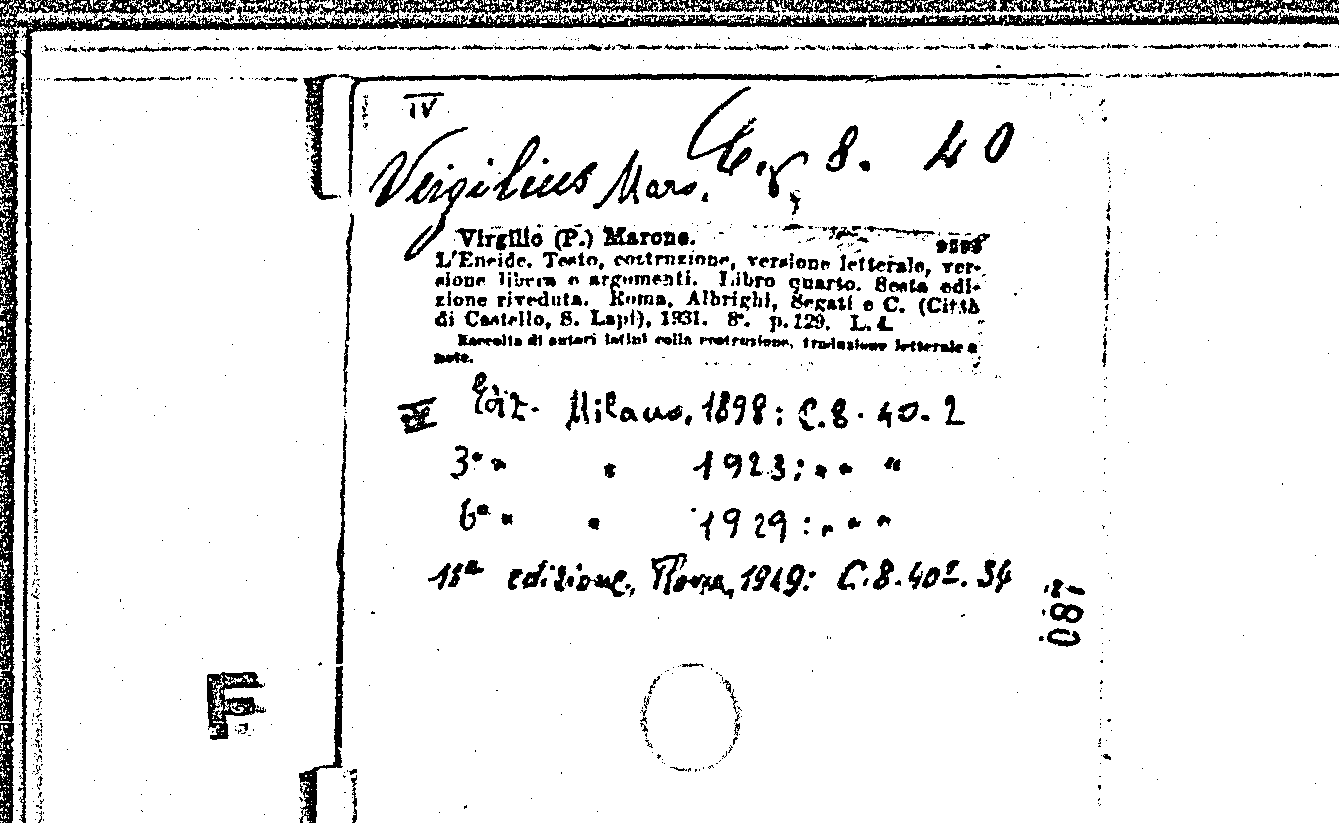 IV
Virgilius Maro. C. 8. 40
Virgilio (P.) Marone.
L'Eneide. Testo, costruzione, versione letterale, ver-
sione libera e argomenti. Libro quarto. Sesta edi-
zione riveduta. Roma, Albrighi, Segati e C. (Città
di Castello, S. Lapi), 1931. 8°. p. 129. L. 4
Raccolta di autori latini colla costruzione, traduzione letterale e
note.
Ediz. Milano, 1898: C.8.40.2
3ª " " 1923: " " "
6ª " " 1929: " " "
edizione, Roma, 1949: C.8.40². 34
087
F